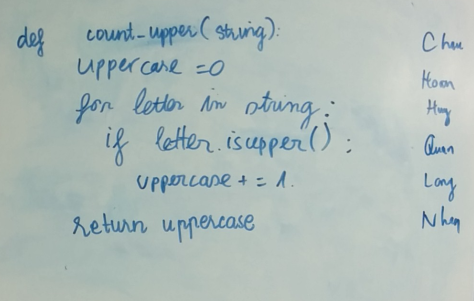 def count-upper(string):
uppercase =0
for letter in string:
if letter.isupper():
uppercase += 1.
return uppercase
Chau
Hoan
Huy
Quan
Long